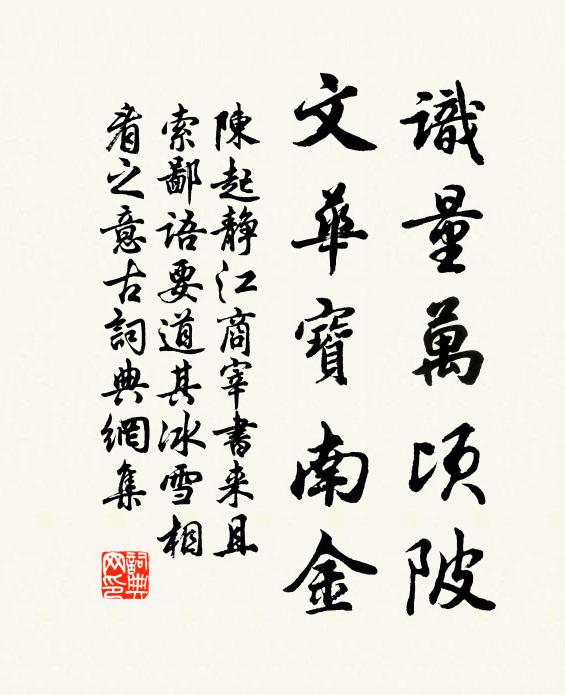 識量萬頃陂
文華寶南金
陳起静江商宰書来且
索鄙语要道其冰雪相
看之意古詞典網集
詞典網印